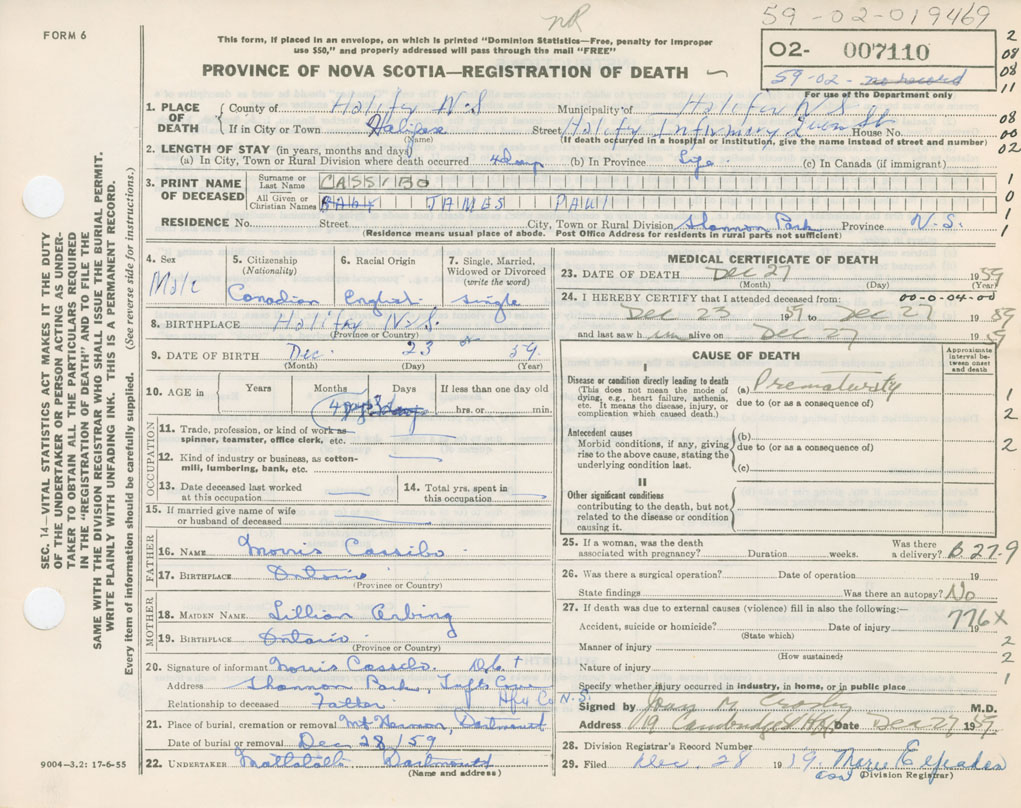 nR
59-02-019469
FORM 6
This form, if placed in an envelope, on which is printed "Dominion Statistics—Free, penalty for improper
use $50," and properly addressed will pass through the mail "FREE"
02- 007110
PROVINCE OF NOVA SCOTIA—REGISTRATION OF DEATH
59-02- no record
For use of the Department only
2
08
08
11
08
00
02
1. PLACE OF DEATH
County of Halifax N.S Municipality of Halifax N S
If in City or Town Halifax Street Halifax Infirmary Queen St House No.
(Name) (If death occurred in a hospital or institution, give the name instead of street and number)
2. LENGTH OF STAY (in years, months and days)
(a) In City, Town or Rural Division where death occurred 4 days (b) In Province Life (c) In Canada (if immigrant)
3. PRINT NAME OF DECEASED
Surname or Last Name CASSIBO
All Given or Christian Names BABY JAMES PAUL
1
0
1
1
RESIDENCE No. Street City, Town or Rural Division Shannon Park Province N.S.
(Residence means usual place of abode. Post Office Address for residents in rural parts not sufficient)
4. Sex
Male
5. Citizenship
(Nationality)
Canadian
6. Racial Origin
English
7. Single, Married,
Widowed or Divorced
(write the word)
single
8. BIRTHPLACE Halifax N.S.
(Province or Country)
9. DATE OF BIRTH Dec. 23 59.
(Month) (Day) (Year)
10. AGE in
Years
Months
Days
4 days
If less than one day old
hrs. or min.
OCCUPATION
11. Trade, profession, or kind of work as
spinner, teamster, office clerk, etc.
12. Kind of industry or business, as cotton-
mill, lumbering, bank, etc.
13. Date deceased last worked
at this occupation
14. Total yrs. spent in
this occupation
15. If married give name of wife
or husband of deceased
FATHER
16. NAME Morris Cassibo.
17. BIRTHPLACE Ontario
(Province or Country)
MOTHER
18. MAIDEN NAME Lillian Arbing
19. BIRTHPLACE Ontario
(Province or Country)
20. Signature of informant Morris Cassibo.
Address Shannon Park, Tufts Cove
Hfx Co N.S.
Relationship to deceased Father
21. Place of burial, cremation or removal Mt Hermon, Dartmouth
Date of burial or removal Dec 28/59
22. UNDERTAKER Mattatall Dartmouth
(Name and address)
9004—3.2: 17-6-55
MEDICAL CERTIFICATE OF DEATH
23. DATE OF DEATH Dec 27 1959
(Month) (Day) (Year)
24. I HEREBY CERTIFY that I attended deceased from: 00-0-04-00
Dec 23 1959 to Dec 27 1959
and last saw him alive on Dec 27 1959
CAUSE OF DEATH
Approximate
interval be-
tween onset
and death
I
Disease or condition directly leading to death
(This does not mean the mode of
dying, e.g., heart failure, asthenia,
etc. It means the disease, injury, or
complication which caused death.)
(a) Prematurity
due to (or as a consequence of)
1
2
Antecedent causes
Morbid conditions, if any, giving
rise to the above cause, stating the
underlying condition last.
(b)
due to (or as a consequence of)
(c)
2
II
Other significant conditions
contributing to the death, but not
related to the disease or condition
causing it.
25. If a woman, was the death
associated with pregnancy? Duration weeks. Was there
a delivery? B. 27-9
26. Was there a surgical operation? Date of operation 19
State findings Was there an autopsy? No
27. If death was due to external causes (violence) fill in also the following:—
776X
Accident, suicide or homicide? Date of injury 19
(State which)
Manner of injury
(How sustained)
Nature of injury
Specify whether injury occurred in industry, in home, or in public place
2
2
1
Signed by Joan M. Crosby M.D.
Address 19 Cambridge Hfx Date Dec 27 1959
28. Division Registrar's Record Number
29. Filed Dec. 28 1959. Marie
(Division Registrar)
SEC. 14—VITAL STATISTICS ACT MAKES IT THE DUTY
OF THE UNDERTAKER OR PERSON ACTING AS UNDER-
TAKER TO OBTAIN ALL THE PARTICULARS REQUIRED
IN THE "REGISTRATION OF DEATH" AND TO FILE THE
SAME WITH THE DIVISION REGISTRAR WHO SHALL ISSUE THE BURIAL PERMIT.
WRITE PLAINLY WITH UNFADING INK. THIS IS A PERMANENT RECORD.
Every item of information should be carefully supplied. (See reverse side for instructions.)